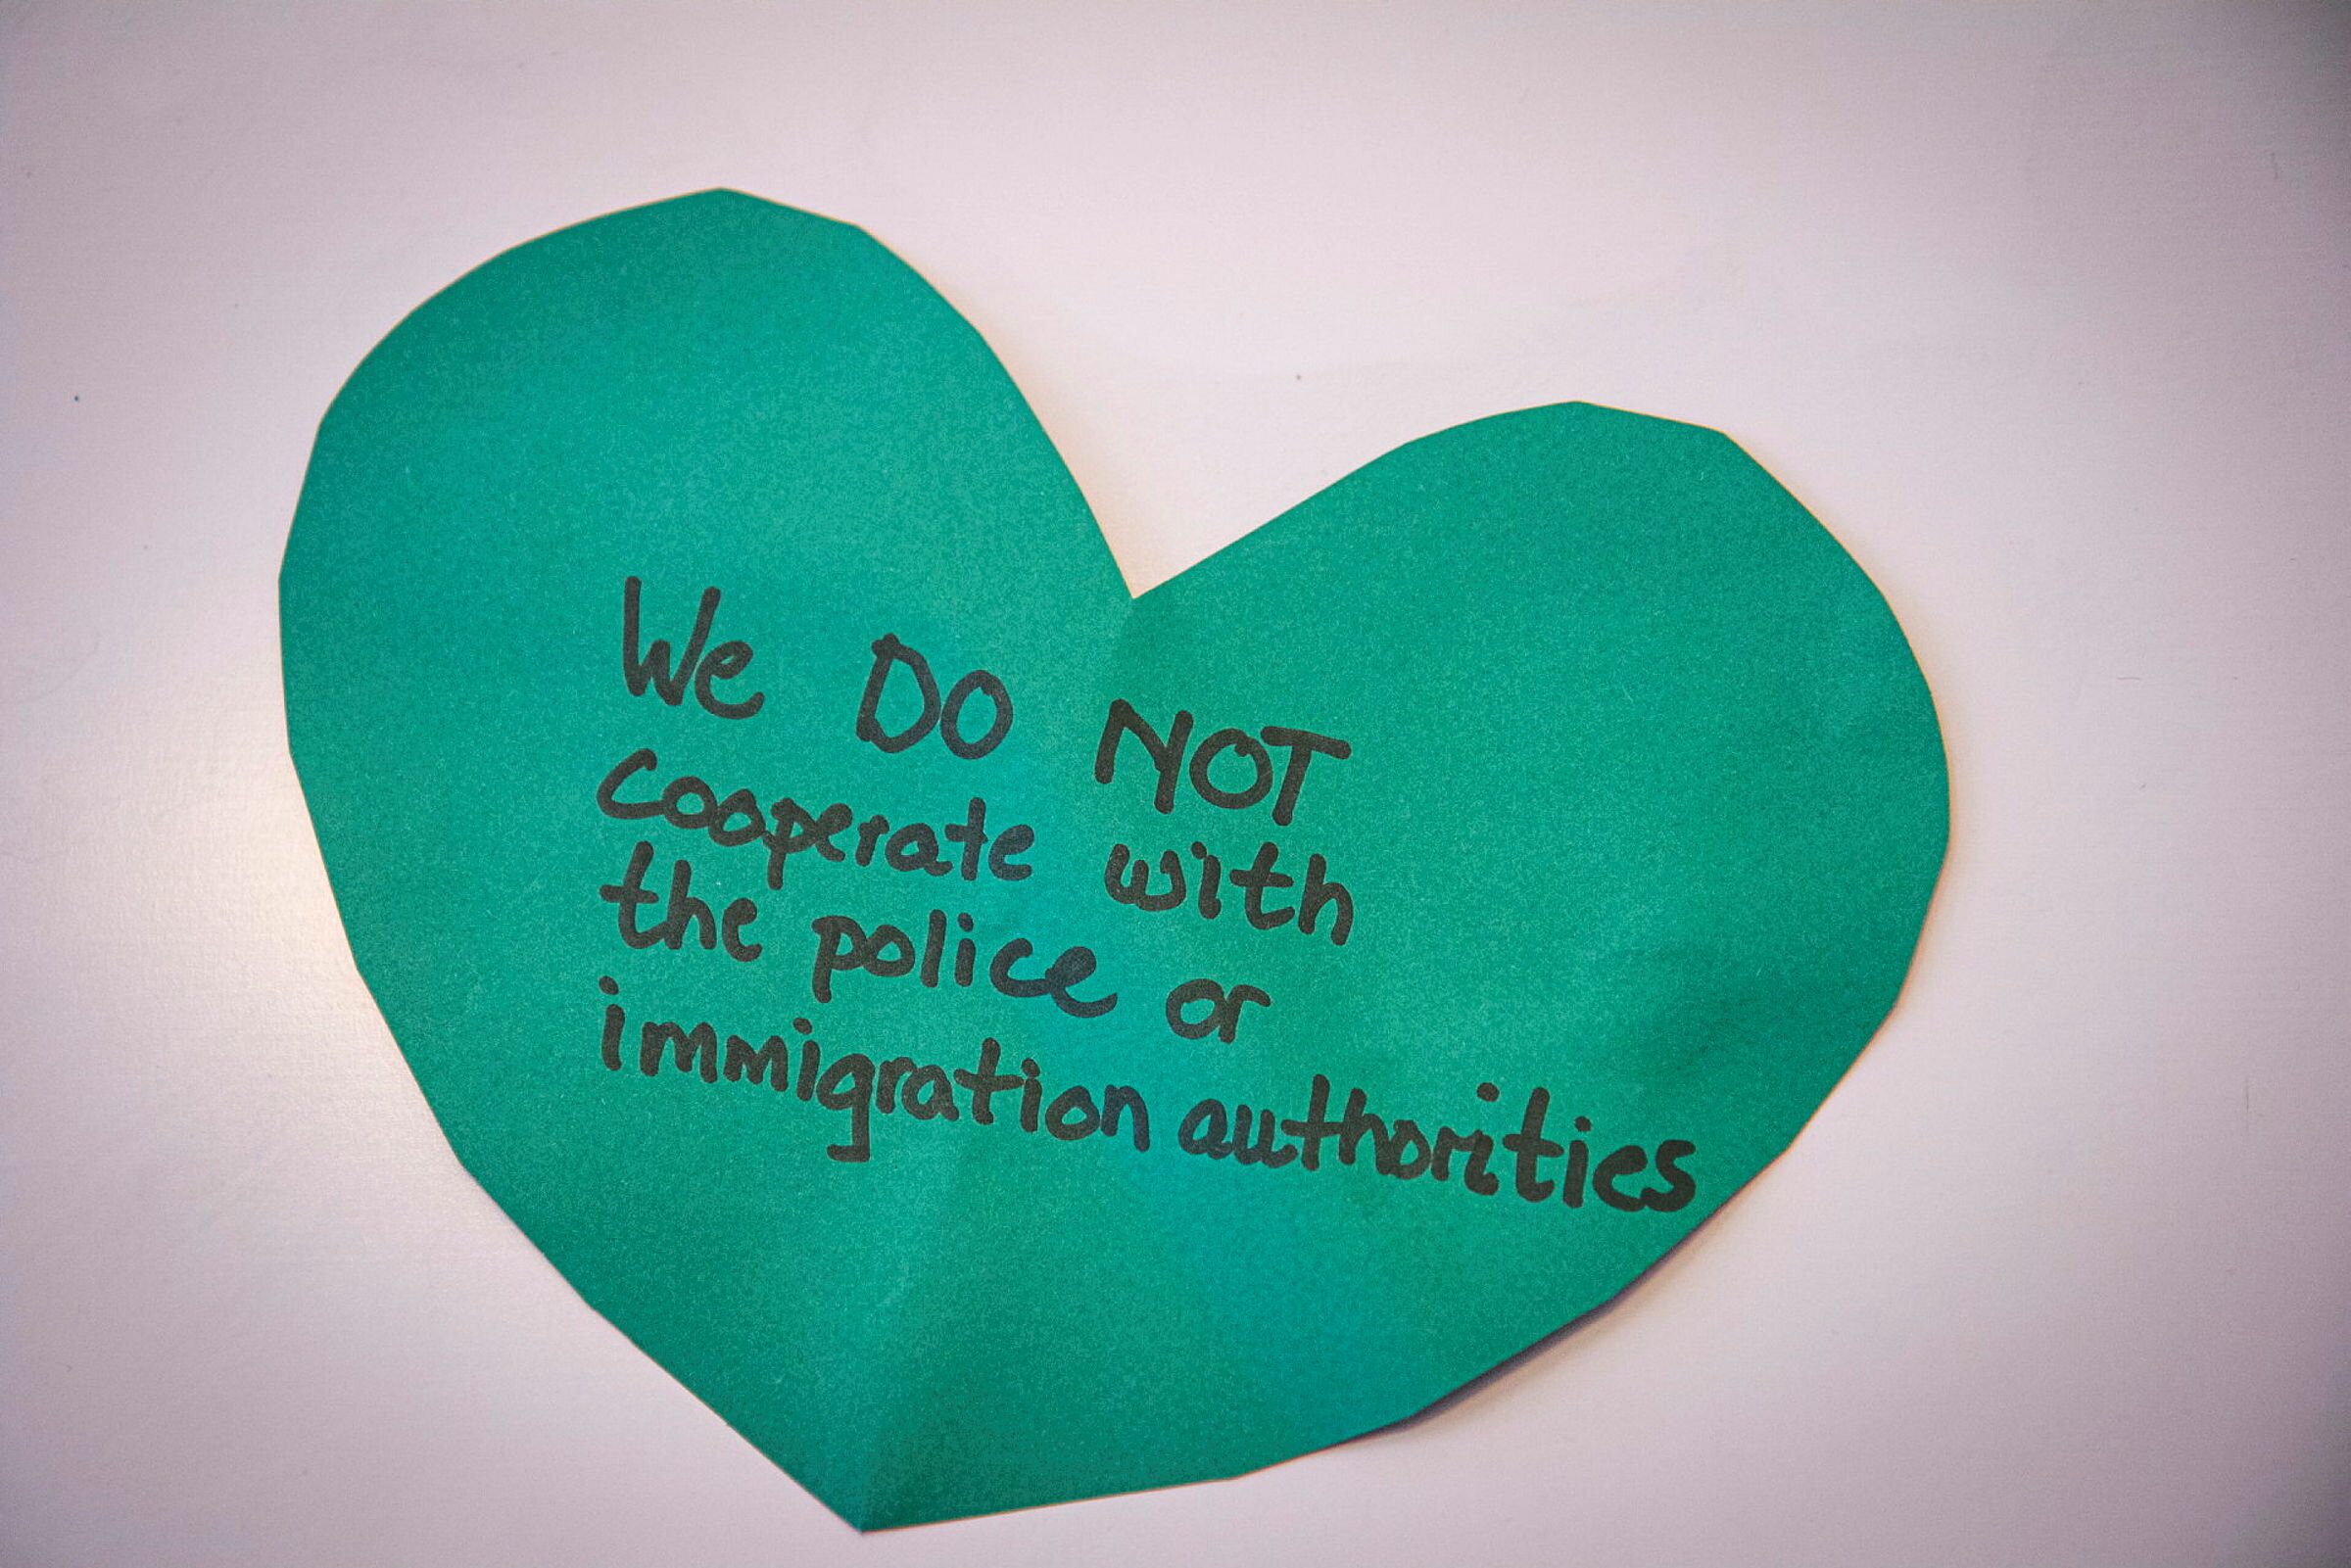 We DO NOT
cooperate with
the police or
immigration authorities